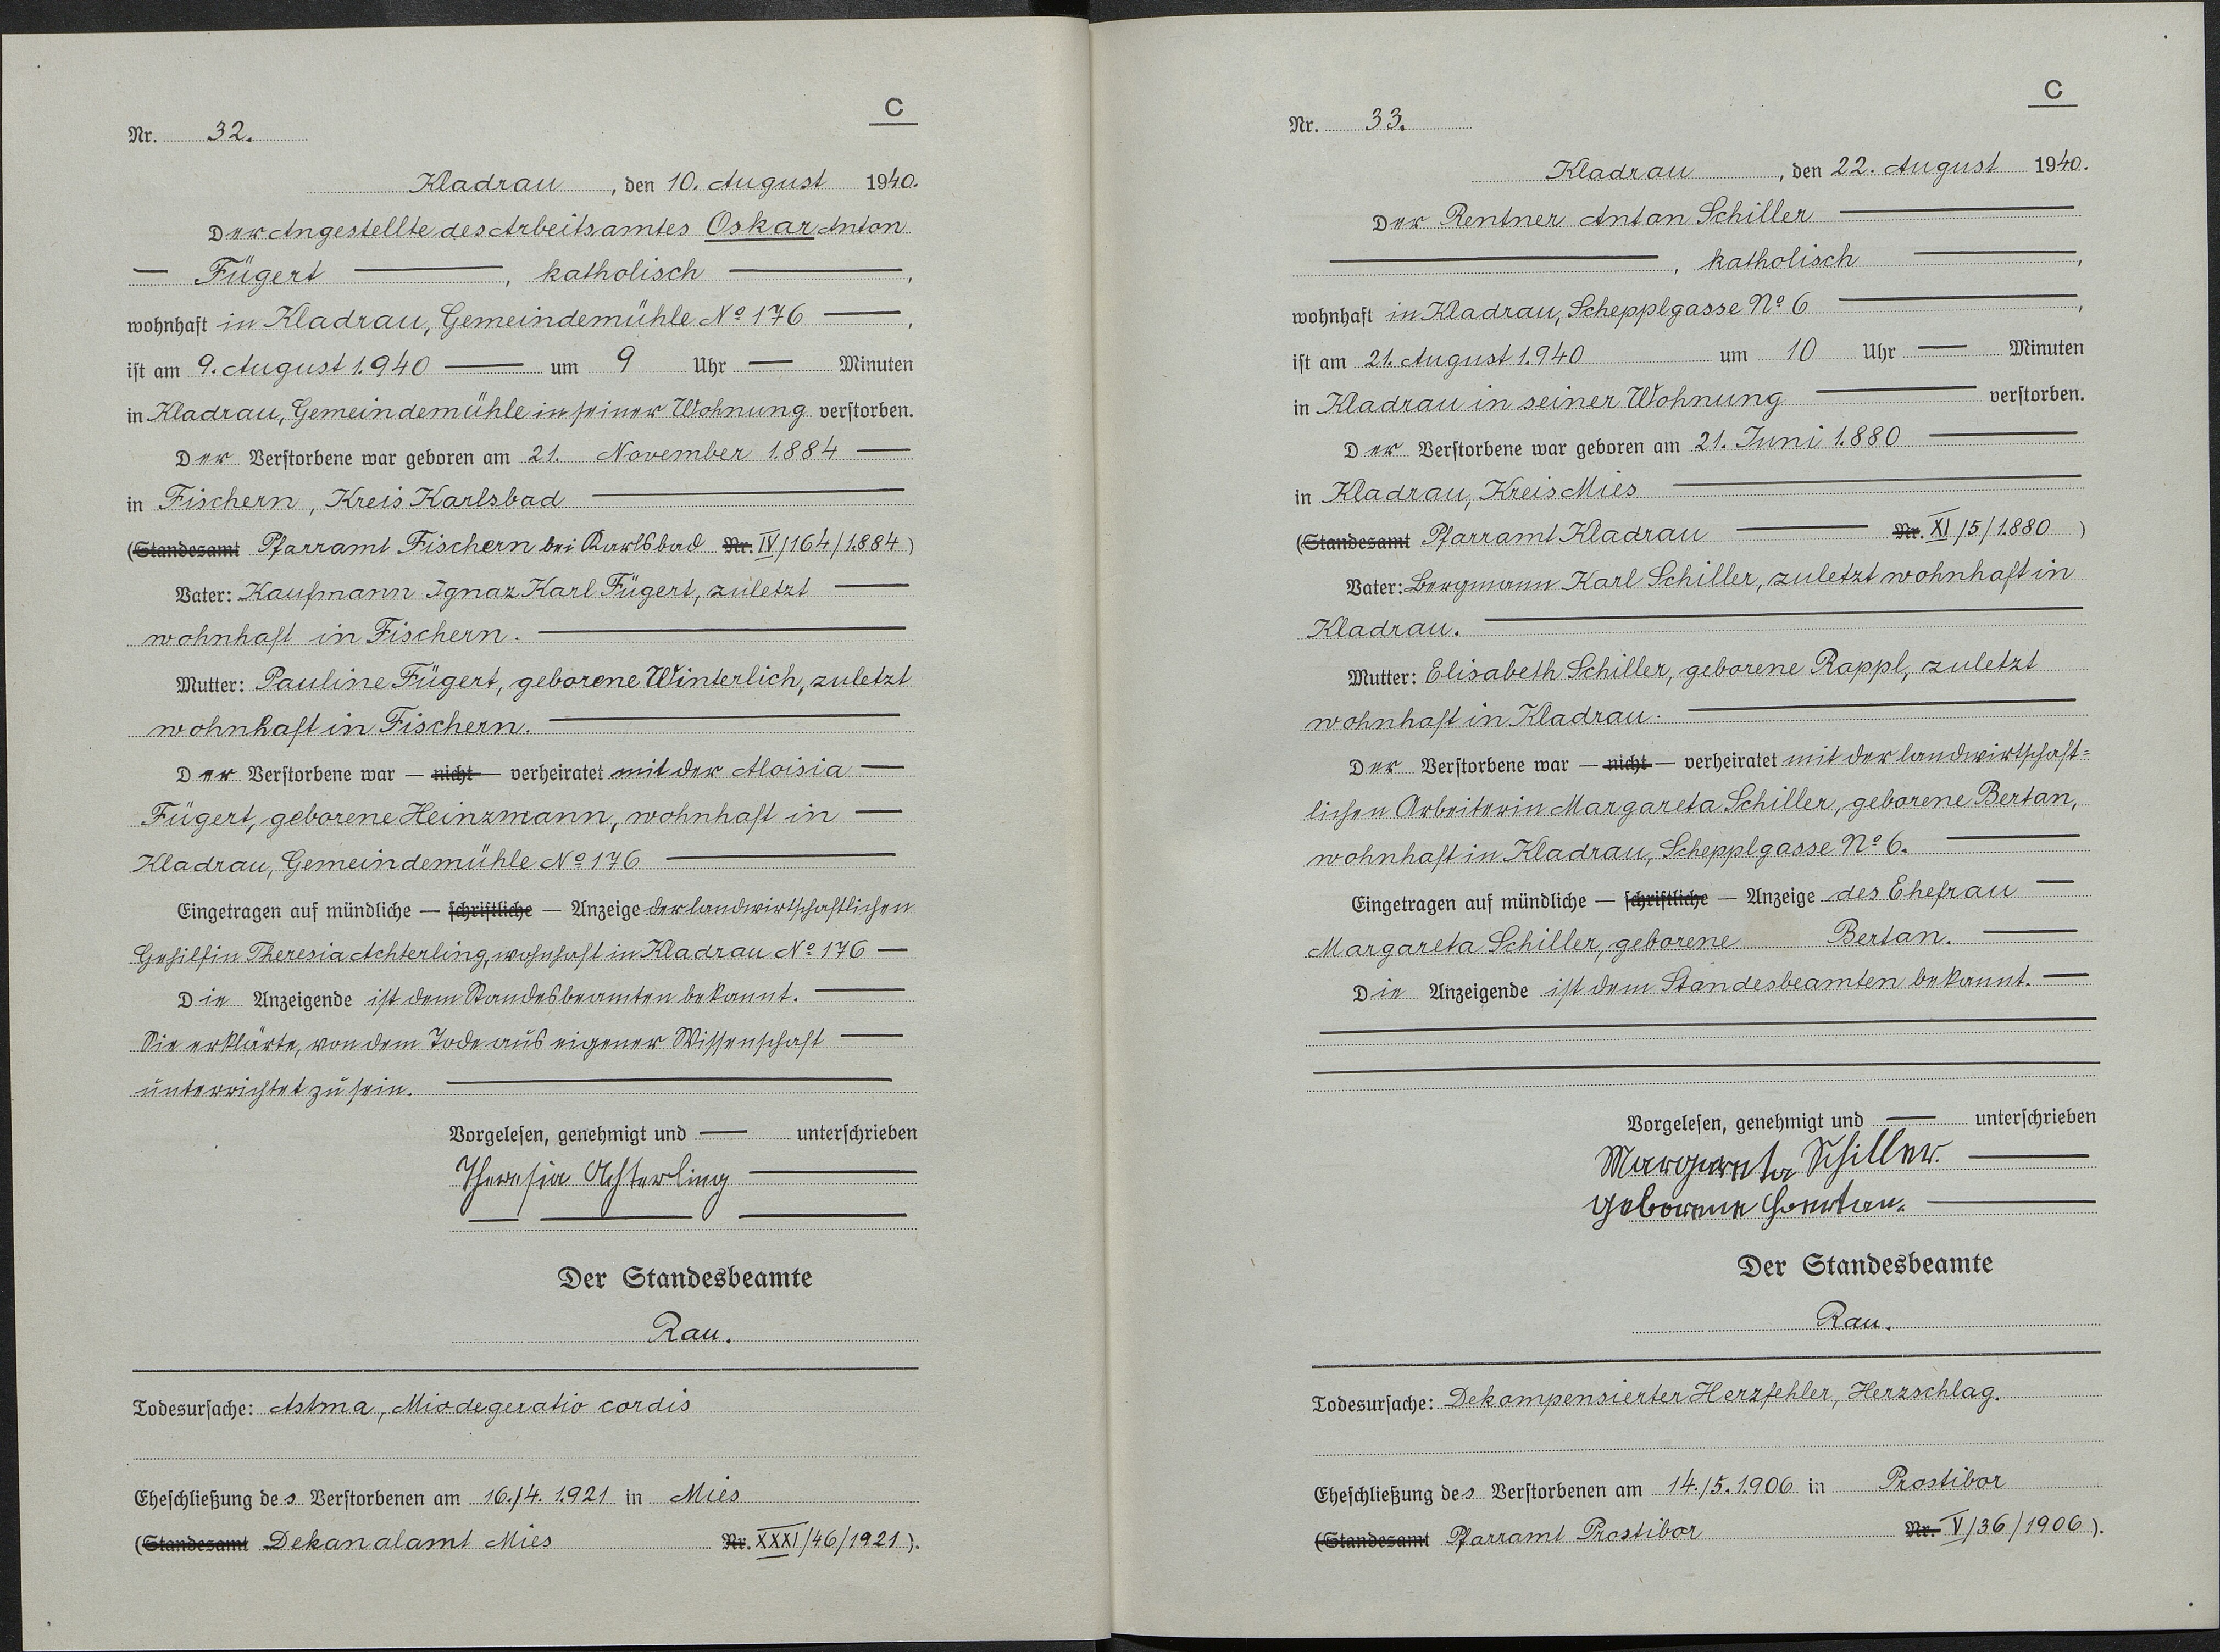 C
Nr. 32.
Kladrau, den 10. August 1940.
Der Angestellte des Arbeitsamtes Oskar Anton
— Fügert —, katholisch —,
wohnhaft in Kladrau, Gemeindemühle No 176 —,
ist am 9. August 1.940 — um 9 Uhr — Minuten
in Kladrau, Gemeindemühle in seiner Wohnung verstorben.
Der Verstorbene war geboren am 21. November 1.884 —
in Fischern, Kreis Karlsbad —
(Standesamt Pfarramt Fischern bei Karlsbad Nr. IV/164/1.884)
Vater: Kaufmann Ignaz Karl Fügert, zuletzt —
wohnhaft in Fischern. —
Mutter: Pauline Fügert, geborene Winterlich, zuletzt
wohnhaft in Fischern. —
Der Verstorbene war — nicht — verheiratet mit der Aloisia —
Fügert, geborene Heinzmann, wohnhaft in —
Kladrau, Gemeindemühle No 176 —
Eingetragen auf mündliche — schriftliche — Anzeige der landwirtschaftlichen
Gehilfin Theresia Achterling, wohnhaft in Kladrau No 176 —
Die Anzeigende ist dem Standesbeamten bekannt. —
Sie erklärte, von dem Tode aus eigener Wissenschaft —
unterrichtet zu sein. —
Vorgelesen, genehmigt und — unterschrieben
Theresia Achterling —
— — —
Der Standesbeamte
Rau.
Todesursache: Astma, Miodegeratio cordis
Eheschließung des Verstorbenen am 16./4. 1.921 in Mies
(Standesamt Dekanalamt Mies Nr. XXXI/46/1921).
C
Nr. 33.
Kladrau, den 22. August 1940.
Der Rentner Anton Schiller —
—, katholisch —,
wohnhaft in Kladrau, Schepplgasse No 6 —,
ist am 21. August 1.940 um 10 Uhr — Minuten
in Kladrau in seiner Wohnung — verstorben.
Der Verstorbene war geboren am 21. Juni 1.880 —
in Kladrau, Kreis Mies —
(Standesamt Pfarramt Kladrau — Nr. XI/5/1.880)
Vater: Bergmann Karl Schiller, zuletzt wohnhaft in
Kladrau. —
Mutter: Elisabeth Schiller, geborene Rappl, zuletzt
wohnhaft in Kladrau. —
Der Verstorbene war — nicht — verheiratet mit der landwirtschaft-
lichen Arbeiterin Margareta Schiller, geborene Bertan,
wohnhaft in Kladrau, Schepplgasse No 6. —
Eingetragen auf mündliche — schriftliche — Anzeige des Ehefrau —
Margareta Schiller, geborene Bertan. —
Die Anzeigende ist dem Standesbeamten bekannt. —
Vorgelesen, genehmigt und — unterschrieben
Margareta Schiller. —
geborene Bertan. —
Der Standesbeamte
Rau.
Todesursache: Dekompensierter Herzfehler, Herzschlag.
Eheschließung des Verstorbenen am 14./5. 1.906 in Prostibor
(Standesamt Pfarramt Prostibor Nr. V/36/1906).